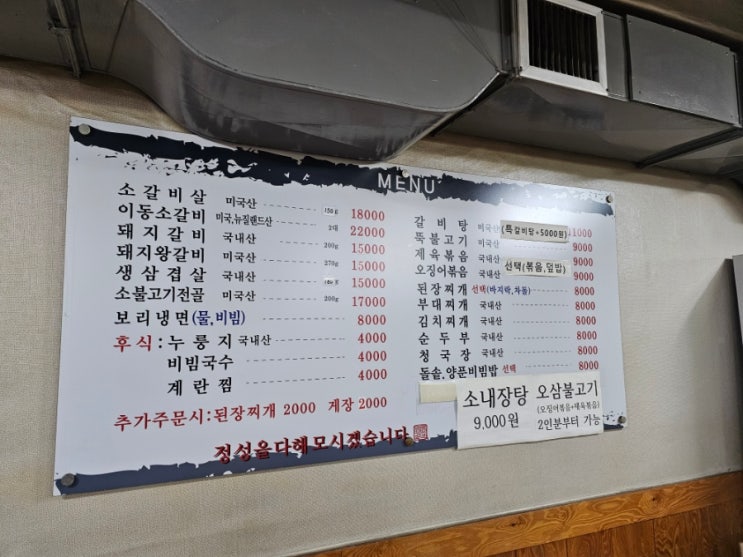 MENU
소갈비살 미국산 150g 18000
이동소갈비 미국,뉴질랜드산 2대 22000
돼지갈비 국내산 200g 15000
돼지왕갈비 국내산 270g 15000
생삼겹살 국내산 15000
소불고기전골 미국산 200g 17000
보리냉면(물,비빔) 8000
후식:누룽지 국내산 4000
비빔국수 4000
계란찜 4000
추가주문시:된장찌개 2000 게장 2000
정성을다해모시겠습니다
갈비탕 미국산 (특갈비탕+5000원) 11000
뚝불고기 미국산 9000
제육볶음 국내산 9000
오징어볶음 국내산 선택(볶음,덮밥) 9000
된장찌개 선택(바지락,차돌) 8000
부대찌개 국내산 8000
김치찌개 국내산 8000
순두부 국내산 8000
청국장 국내산 8000
돌솥,양푼비빔밥 선택 8000
소내장탕
9,000원
오삼불고기
(오징어볶음+제육볶음)
2인분부터 가능